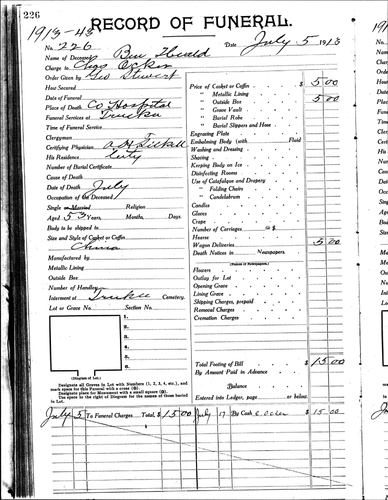 226
1913-43
RECORD OF FUNERAL.
No. 226 Date July 5 1913
Name of Deceased Ben Herald
Charge to
Order Given by Geo Stewart
Hour Secured
Date of Funeral
Place of Death Co Hospital
Funeral Services at Truckee
Time of Funeral Service
Clergyman
Certifying Physician
His Residence City
Number of Burial Certificate
Cause of Death
Date of Death July
Occupation of Deceased
Single or Married Religion
Aged 53 Years, Months, Days
Body to be shipped to
Size and Style of Casket or Coffin
Manufactured by
Metallic Lining
Outside Box
Number of Handles
Interment at Truckee Cemetery.
Lot or Grave No. Section No.
1.
2.
3.
4.
5.
6.
(Diagram of Lot.)
Designate all Graves in Lot with Numbers (1, 2, 3, 4, etc.), and
mark space for this Funeral with a cross
Designate place for Monument with a small square
Use space to the right of Diagram for the names of those buried
in Lot.
Price of Casket or Coffin $ 5 00
" Metallic Lining
" Outside Box 5 00
" Grave Vault
" Burial Robe
" Burial Slippers and Hose
Engraving Plate
Embalming Body (with Fluid
Washing and Dressing
Shaving
Keeping Body on Ice
Disinfecting Rooms
Use of Catafalque and Drapery
" Folding Chairs
" Candelabrum
Candles
Gloves
Crape
Number of Carriages @ $
Hearse
Wagon Deliveries 5 00
Death Notices in Newspapers.
(Names of Newspapers.)
Flowers
Outlay for Lot
Opening Grave
Lining Grave
Shipping Charges, prepaid
Removal Charges
Cremation Charges
Total Footing of Bill $ 15 00
By Amount Paid in Advance
Balance
Entered into Ledger, page or below.
July 5 To Funeral Charges Total, $ 15 00 July 17 By Cash 15 00